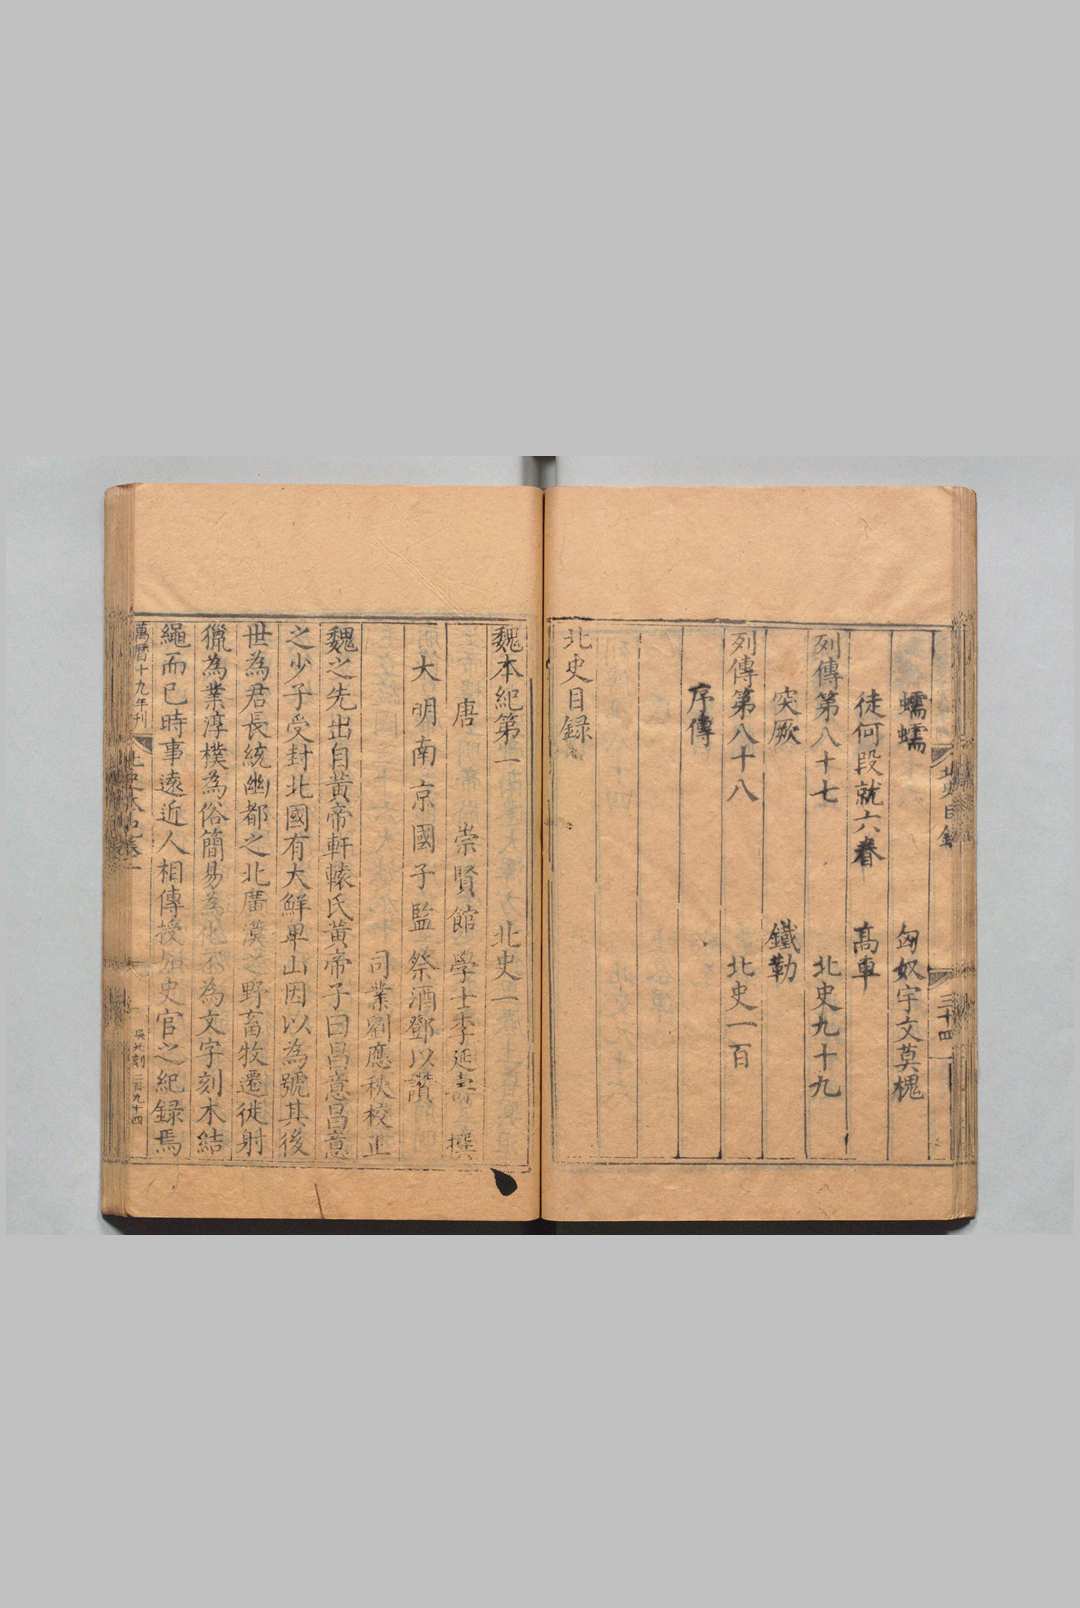 北史目錄
三十四
蠕蠕 匈奴宇文莫槐
徒何段就六眷 高車
列傳第八十七 北史九十九
突厥 鐵勒
列傳第八十八 北史一百
序傳
北史目錄
魏本紀第一 北史一
唐 崇賢館學士李延壽 撰
大明南京國子監祭酒鄧以讚
司業劉應秋校正
魏之先出自黃帝軒轅氏黃帝子曰昌意昌意
之少子受封北國有大鮮卑山因以為號其後
世為君長統幽都之北廣漠之野畜牧遷徙射
獵為業淳樸為俗簡易為化不為文字刻木結
繩而已時事遠近人相傳授如史官之紀錄焉
萬曆十九年刊